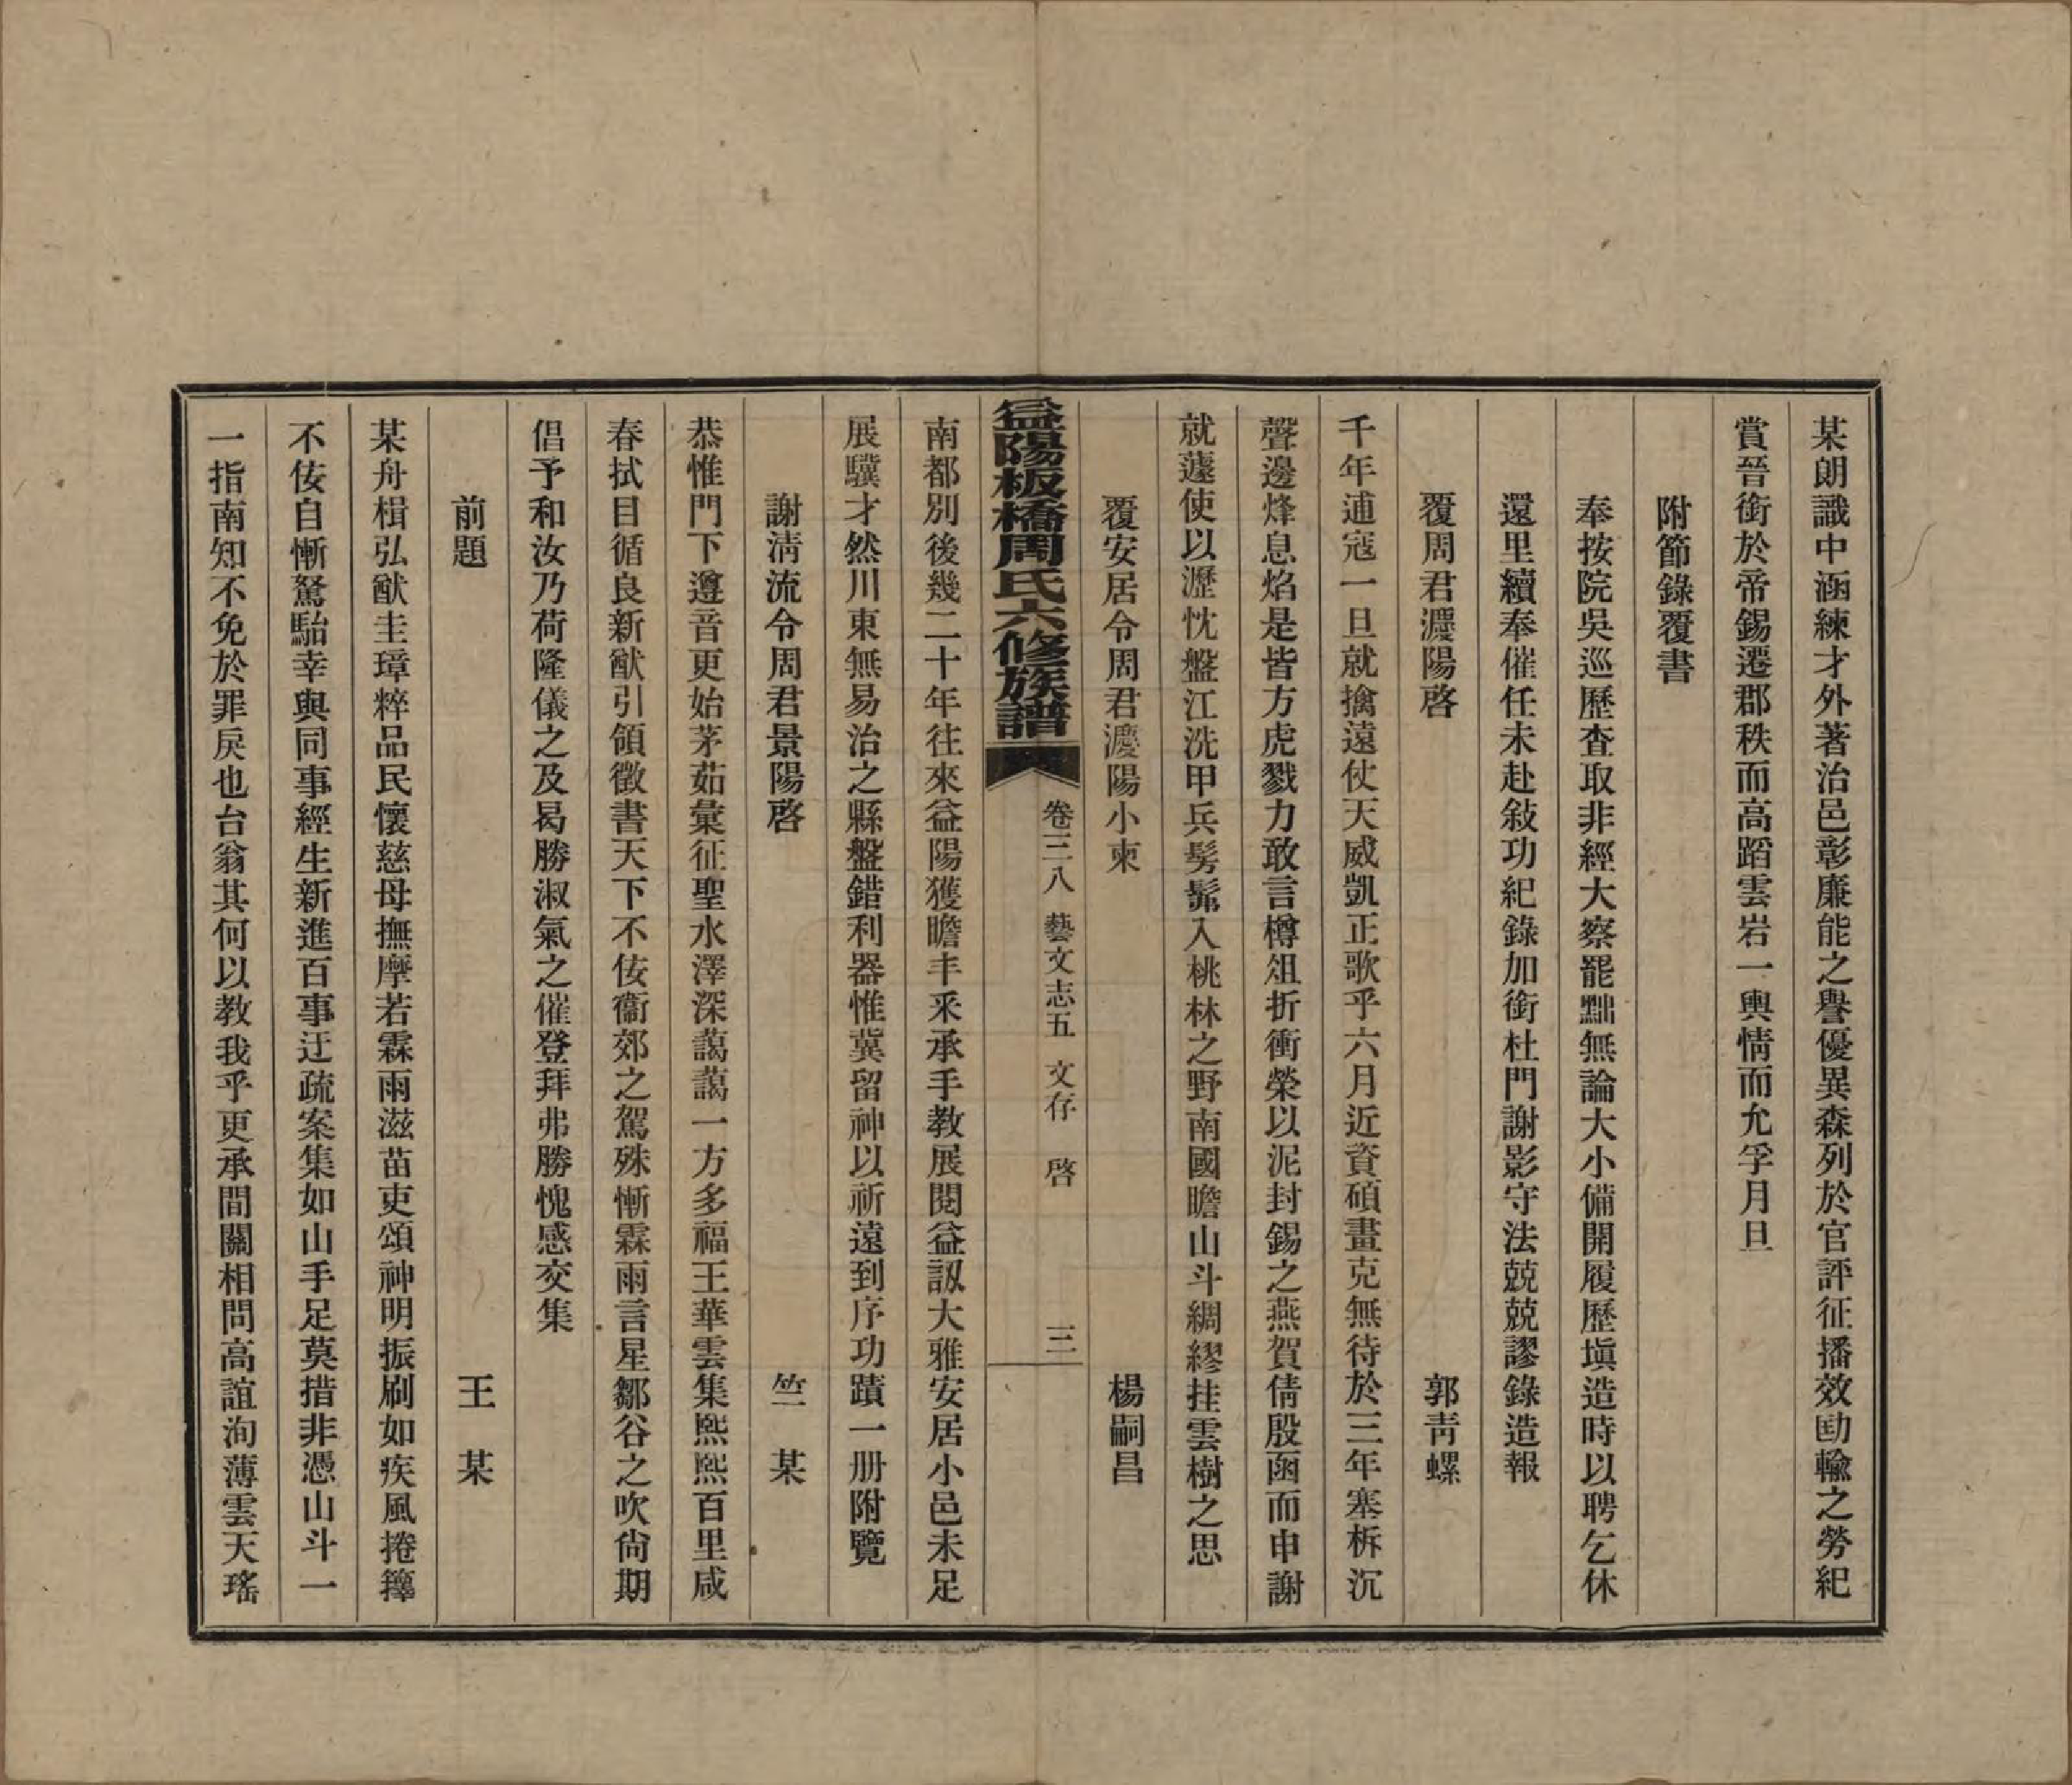 某朗識中涵練才外著治邑彰廉能之譽優異森列於官評征播效劻輸之勞紀
賞晉銜於帝錫遷郡秩而高蹈雲岩一輿情而允孚月旦
附節錄覆書
奉按院吳巡歷查取非經大察罷黜無論大小備開履歷塡造時以聘乞休
還里續奉催任未赴敍功紀錄加銜杜門謝影守法兢兢謬錄造報
覆周君瀴陽啓 郭靑螺
千年逋寇一旦就擒遠仗天威凱正歌乎六月近資碩畫克無待於三年塞柝沉
聲邊烽息焰是皆方虎戮力敢言樽俎折衝榮以泥封錫之燕賀倩殷函而申謝
就薳使以瀝忱盤江洗甲兵髣髴入桃林之野南國瞻山斗綢繆挂雲樹之思
覆安居令周君瀴陽小柬 楊嗣昌
益陽板橋周氏六修族譜 卷三八 藝文志五 文存 啓 三
南都別後幾二十年往來益陽獲瞻丰采承手教展閱益認大雅安居小邑未足
展驥才然川東無易治之縣盤錯利器惟冀留神以祈遠到序功蹟一册附覽
謝淸流令周君景陽啓 竺 某
恭惟門下遵音更始茅茹彙征聖水澤深藹藹一方多福王華雲集熙熙百里咸
春拭目循良新猷引領徵書天下不佞衞郊之駕殊慚霖雨言星鄒谷之吹尙期
倡予和汝乃荷隆儀之及曷勝淑氣之催登拜弗勝愧感交集
前題 王 某
某舟楫弘猷圭璋粹品民懷慈母撫摩若霖雨滋苗吏頌神明振刷如疾風捲籜
不佞自慚駑駘幸與同事經生新進百事迂疏案集如山手足莫措非憑山斗一
一指南知不免於罪戾也台翁其何以教我乎更承間關相問高誼洵薄雲天瑤